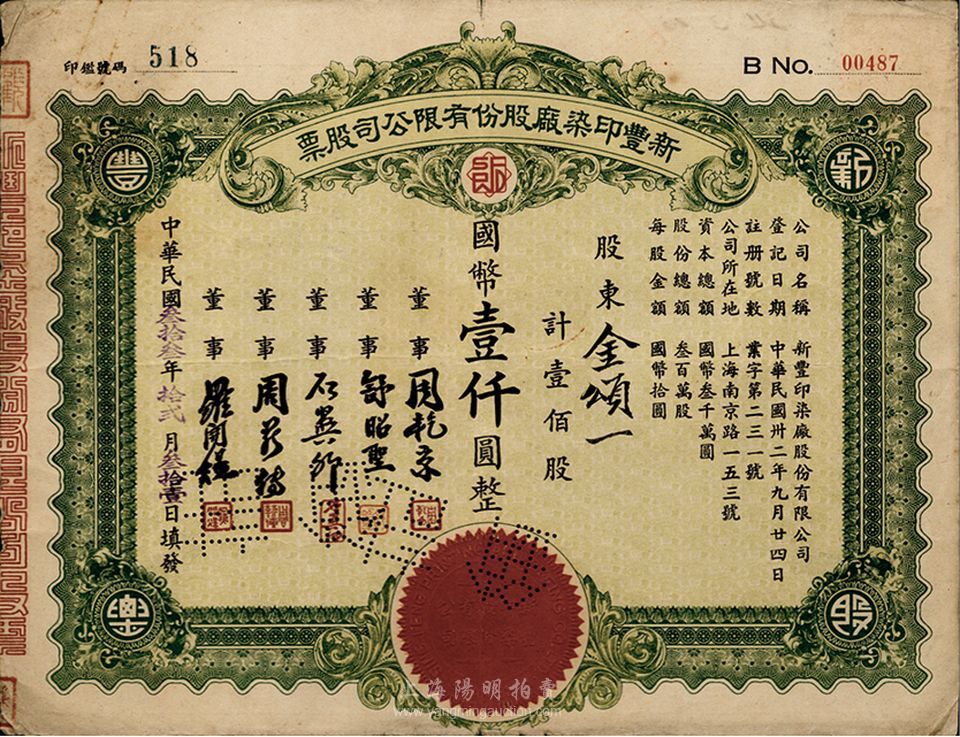 印鑑號碼 518
B No. 00487
新豐印染廠股份有限公司股票
新
豐
股
票
公司名稱 新豐印染廠股份有限公司
登記日期 中華民國卅二年九月廿四日
註册號數 業字第二三一號
公司所在地 上海南京路一五三號
資本總額 國幣叁千萬圓
股份總額 叁百萬股
每股金額 國幣拾圓
股東 金頌一
計壹佰股
國幣壹仟圓整
董事 周乾京
董事 舒昭聖
董事
董事 周
董事
中華民國叁拾叁年拾弍月叁拾壹日填發
上海陽明拍賣
www.yangmingauction.com